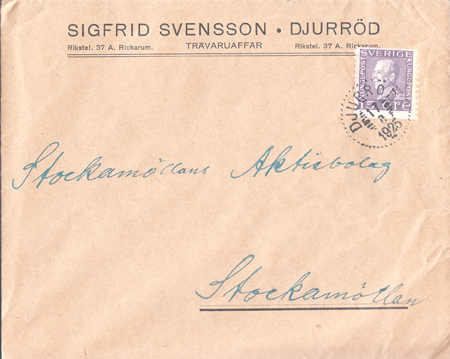 SIGFRID SVENSSON • DJURRÖD
Rikstel. 37 A. Rickarum. TRÄVARUAFFÄR Rikstel. 37 A. Rickarum.
SVERIGE
15 ÖRE
DJURRÖD
17
1925
Stockamöllans Aktiebolag
Stockamöllan